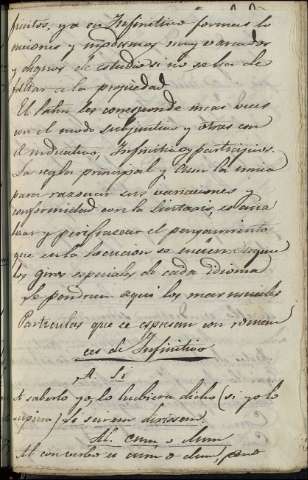 puntos, ya en Infinitivo formas lo
cuciones y modismos muy variados
y dignos de estudio si no se ha de
faltar a la propiedad
El latin les corresponde unas veces
con el modo subjuntivo y otras con
el indicativo, Infinitivo y participios.
La regla principal y
para razonar sus variaciones y
conformidad con la Sintaxis, es
y perifrasear el pensamiento
que en la locucion se encierra
los giros especiales de cada idioma
Se pondran aqui los mas usuales
Particulas que se espresan con roman
ces de Infinitivo
A. Si
A saberlo yo, lo hubiera dicho (si yo lo
supiera) Si scirem dixissem.
Al. cum o dum
Al con verbo es cum o dum, pero